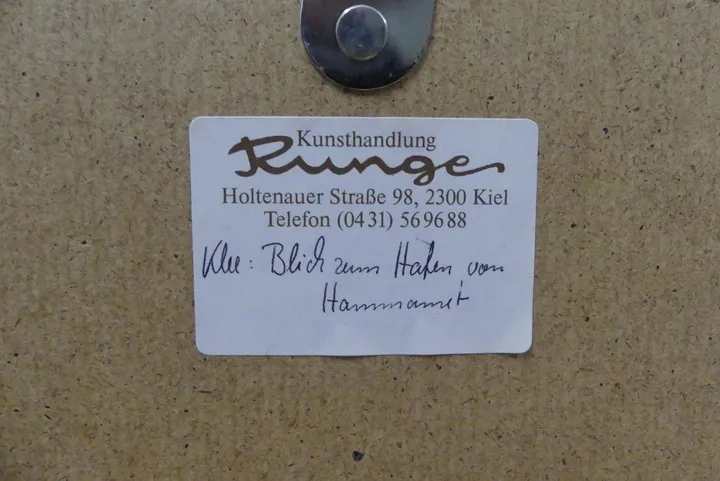 Kunsthandlung
Runge
Holtenauer Straße 98, 2300 Kiel
Telefon (0431) 569688
Klee: Blick zum Hafen von
Hammamet